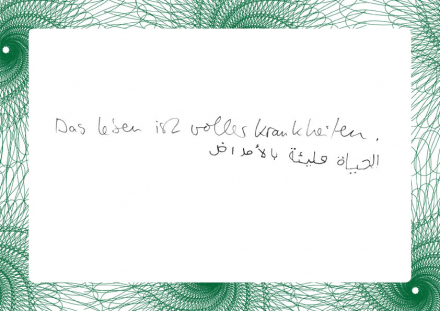 Das leben ist voller krankheiten.
الحياة مليئة بالأمراض